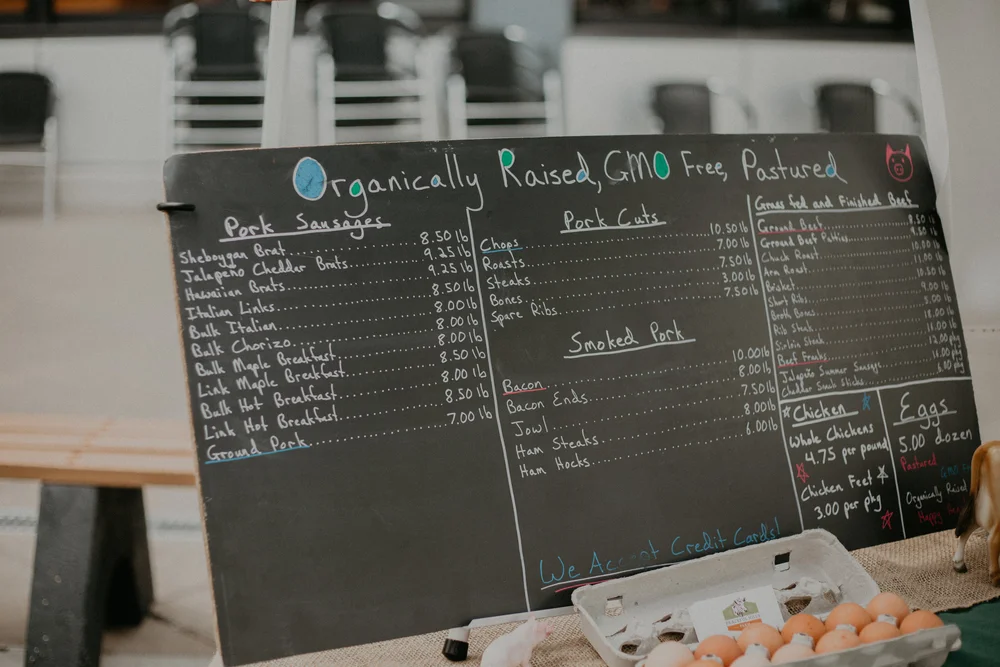 Organically Raised, GMO Free, Pastured
Pork Sausages
Sheboygan Brat 8.50 lb
Jalapeño Cheddar Brats 9.25 lb
Hawaiian Brats 9.25 lb
Italian Links 8.50 lb
Bulk Italian 8.00 lb
Bulk Chorizo 8.00 lb
Bulk Maple Breakfast 8.00 lb
Link Maple Breakfast 8.50 lb
Bulk Hot Breakfast 8.00 lb
Link Hot Breakfast 8.50 lb
Ground Pork 7.00 lb
Pork Cuts
Chops 10.50 lb
Roasts 7.00 lb
Steaks 7.50 lb
Bones 3.00 lb
Spare Ribs 7.50 lb
Smoked Pork
Bacon 10.00 lb
Bacon Ends 8.00 lb
Jowl 7.50 lb
Ham Steaks 8.00 lb
Ham Hocks 6.00 lb
We Accept Credit Cards!
Grass fed and Finished Beef
Ground Beef 8.50 lb
Ground Beef Patties
Chuck Roast
Arm Roast
Brisket
Short Ribs
Broth Bones
Rib Steak
Sirloin Steak
Beef Franks
Jalapeño Summer Sausage
Cheddar Snack Sticks
Chicken
Whole Chickens
4.75 per pound
Chicken Feet
3.00 per pkg
Eggs
5.00 dozen
Pastured
Organically Raised
Happy